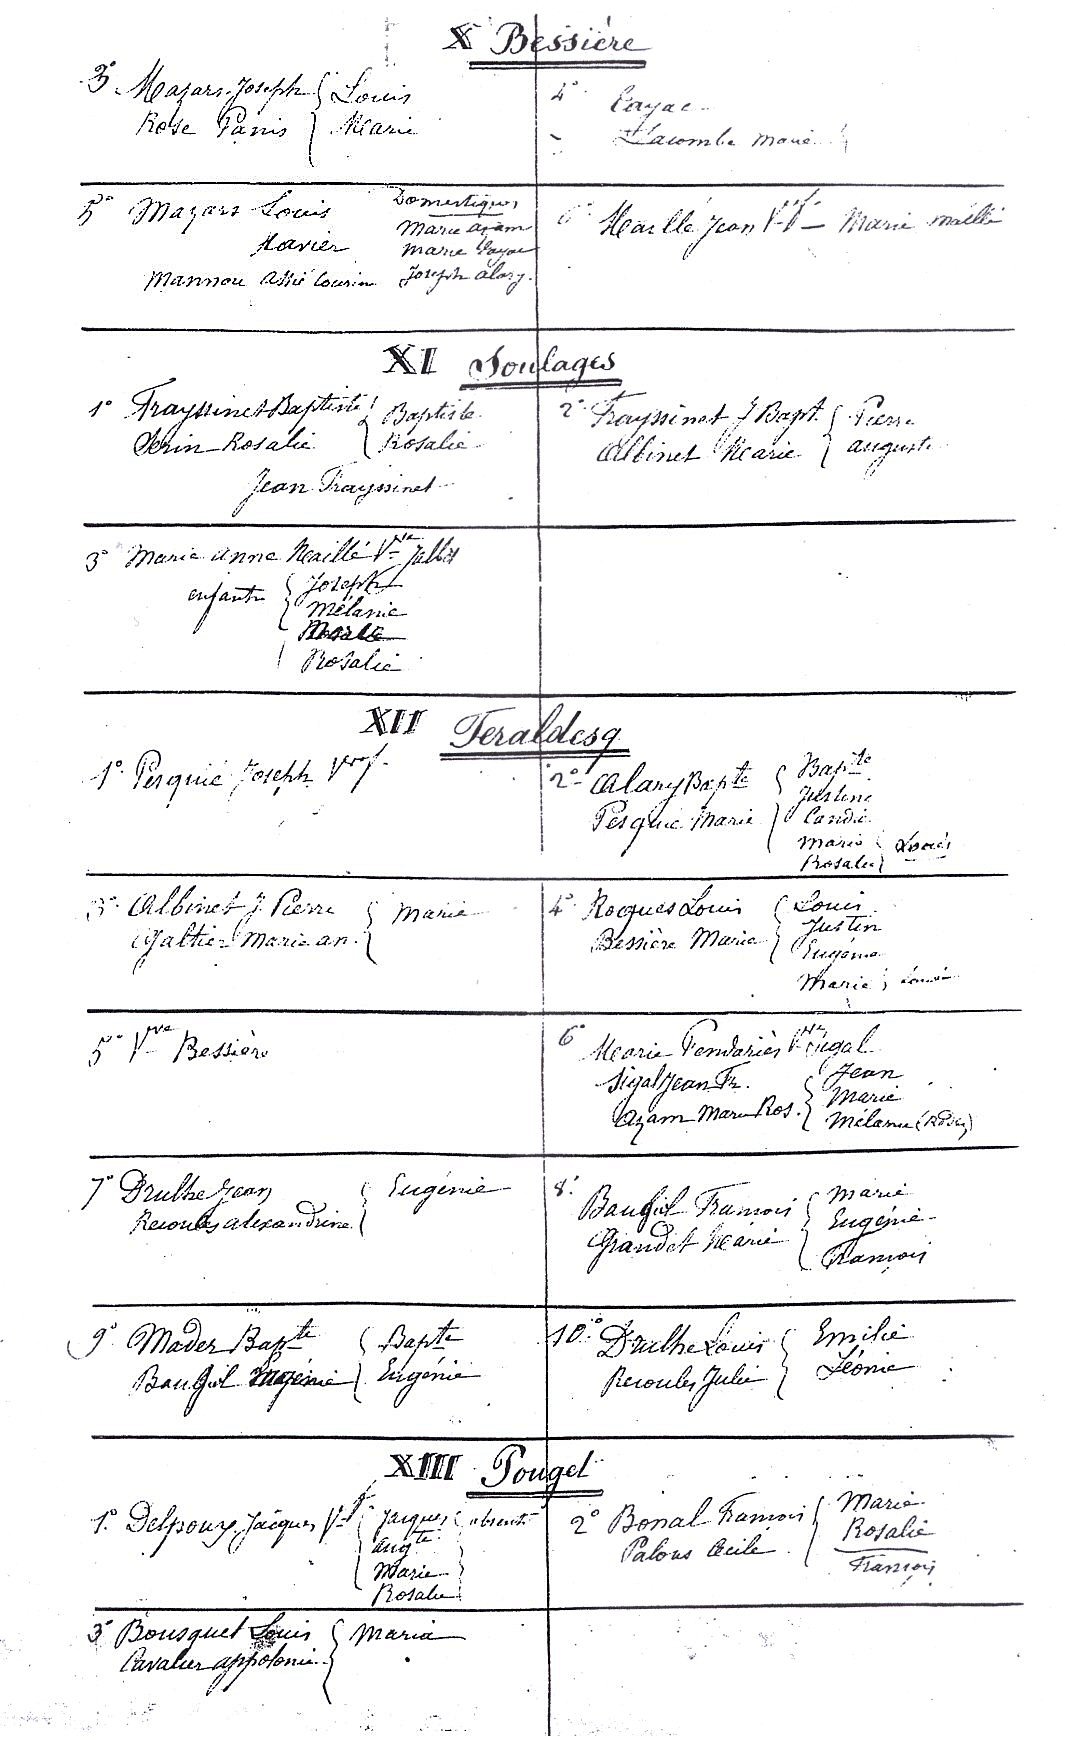 X Bessière
3° Mazars Joseph { Louis
Rose Panis } Marie
4° Cayac
Lacombe Marie
5° Mazars Louis
Xavier
Mannou Assié cousin
Domestiques
Marie Azam
Marie Cayac
Joseph Alary
6° Maillé Jean Vf — Marie Maillé
XI Soulages
1° Frayssinet Baptiste { Baptiste
Serin Rosalie { Rosalie
Jean Frayssinet
2° Frayssinet J Bapt. { Pierre
Albinet Marie { Auguste
3° Marie Anne Maillé Vve Jalbs
enfants { Joseph
Mélanie
Rosalie
XII Feraldesq
1° Pesquié Joseph Veuf
2° Alary Bapte { Bapte
Pesquié Marie
Justine
Candie
Marie } Louis
Rosalie
3° Albinet J Pierre { Marie
Galtier Marie an.
4° Roques Louis { Louis
Bessière Marie
Justin
Eugénie
Marie
5° Vve Bessière
6° Marie Fendariès Vve Sigal
Sigal Jean Fr. { Jean
Azam Marie Ros. { Marie
Mélanie
7° Drulhe Jean { Eugénie
Recoules Alexandrine
8° Baugil François { Marie
Grandet Marie { Eugénie
François
9° Mader Bapte { Bapte
Baugil Eugénie { Eugénie
10° Drulhe Louis { Emilie
Recoules Julie { Léonie
XIII Pouget
1° Delpoux Jacques Vf { Jacques } absents
Augte
Marie
Rosalie
2° Bonal François { Marie
Palous Cécile { Rosalie
François
3° Bousquet Louis { Maria
Cavalier Appolonie